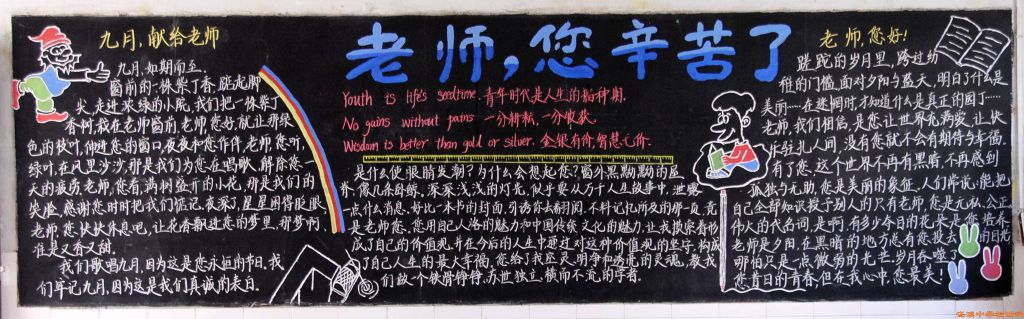 老师,您辛苦了
九月,献给老师
九月,如期而至.
窗前的一株紫丁香,踮起脚
尖,走进浓绿的小院,我们把一株紫丁
香树,栽在老师窗前,老师,您好,就让那绿
色的枝叶,伸进您的窗口,夜夜和您作伴,老师,您听,
绿叶在风里沙沙,那是我们为您在唱歌,解除您一
天的疲劳,老师,您看,满树盛开的小花,那是我们的
笑脸,感谢您时时把我们惦记,夜深了,星星困得眨眼,
老师,您快快休息吧,让花香飘进您的梦里,那梦啊,
准是又香又甜.
我们歌唱九月,因为这是您永恒的节日.我
们牢记九月,因为这是我们真诚的表白.
Youth is life's seedtime.青年时代是人生的播种期.
No gains without pains 一分耕耘,一分收获.
Wisdom is better than gold or silver. 金银有价,智慧无价.
是什么使眼睛发潮?为什么会想起您?窗外黑黝黝的屋
脊,像几条卧鲸,深深浅浅的灯光,似乎要从万千人生故事中,泄露
一点什么消息.好比一本书的封面,引诱你去翻阅.不料记忆所及的那一页,竟
是老师您,您用自己人格的魅力和中国传统文化的魅力,让我摸索着形
成了自己的价值观,并在今后的人生中通过对这种价值观的坚守,构成
了自己人生的最大幸福,您给了我应灵,明净和透亮的灵魂,教我
们做一个铁骨铮铮,苏世独立,横而不流的学者.
老师,您好!
蹉跎的岁月里,跨过幼
稚的门槛,面对夕阳与蓝天,明白了什么是
美丽……在迷惘时,才知道什么是真正的园丁……
老师,我们相信,是您让世界充满爱,让快
乐驻扎人间,没有您就不会有期待与幸福.
有了您,这个世界不再有黑暗,不再感到
孤独与无助,您是美丽的象征,人们常说:能把
自己全部知识授予别人的只有老师,您是无私,公正,
伟大的代名词,是啊,有多少今日的花朵是您培养
老师是夕阳,在黑暗的地方总有您投去的目光
哪怕只是一点微弱的光芒,岁月吞噬了
您昔日的青春,但在我心中,您最美!